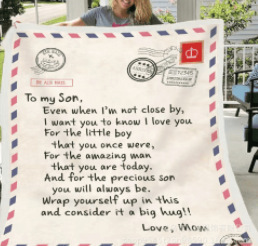 BY AIR MAIL
To my Son,
Even when I'm not close by,
I want you to know I love you
For the little boy
that you once were,
For the amazing man
that you are today.
And for the precious son
you will always be.
Wrap yourself up in this
and consider it a big hug!!
Love, Mom